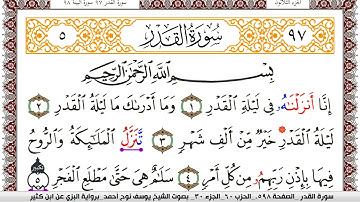 الجزء الثلاثون
سورة القدر ٩٧ سورة البينة ٩٨
٩٧ سُورَةُ القَدْرِ ٥
بِسْمِ اللَّهِ الرَّحْمَٰنِ الرَّحِيمِ
إِنَّا أَنزَلْنَٰهُۥ فِي لَيْلَةِ الْقَدْرِ ١ وَمَا أَدْرَىٰكَ مَا لَيْلَةُ الْقَدْرِ ٢
لَيْلَةُ الْقَدْرِ خَيْرٌ مِّنْ أَلْفِ شَهْرٍ ٣ تَّنَزَّلُ الْمَلَٰٓئِكَةُ وَالرُّوحُ
فِيهَا بِإِذْنِ رَبِّهِمُۥ مِن كُلِّ أَمْرٍ ٤ سَلَٰمٌ هِيَ حَتَّىٰ مَطْلَعِ الْفَجْرِ ٥
سورة القدر _ الصفحة ٥٩٨_ الحزب ٦٠_ الجزء ٣٠_ بصوت الشيخ يوسف نوح احمد_ برواية البزي عن ابن كثير